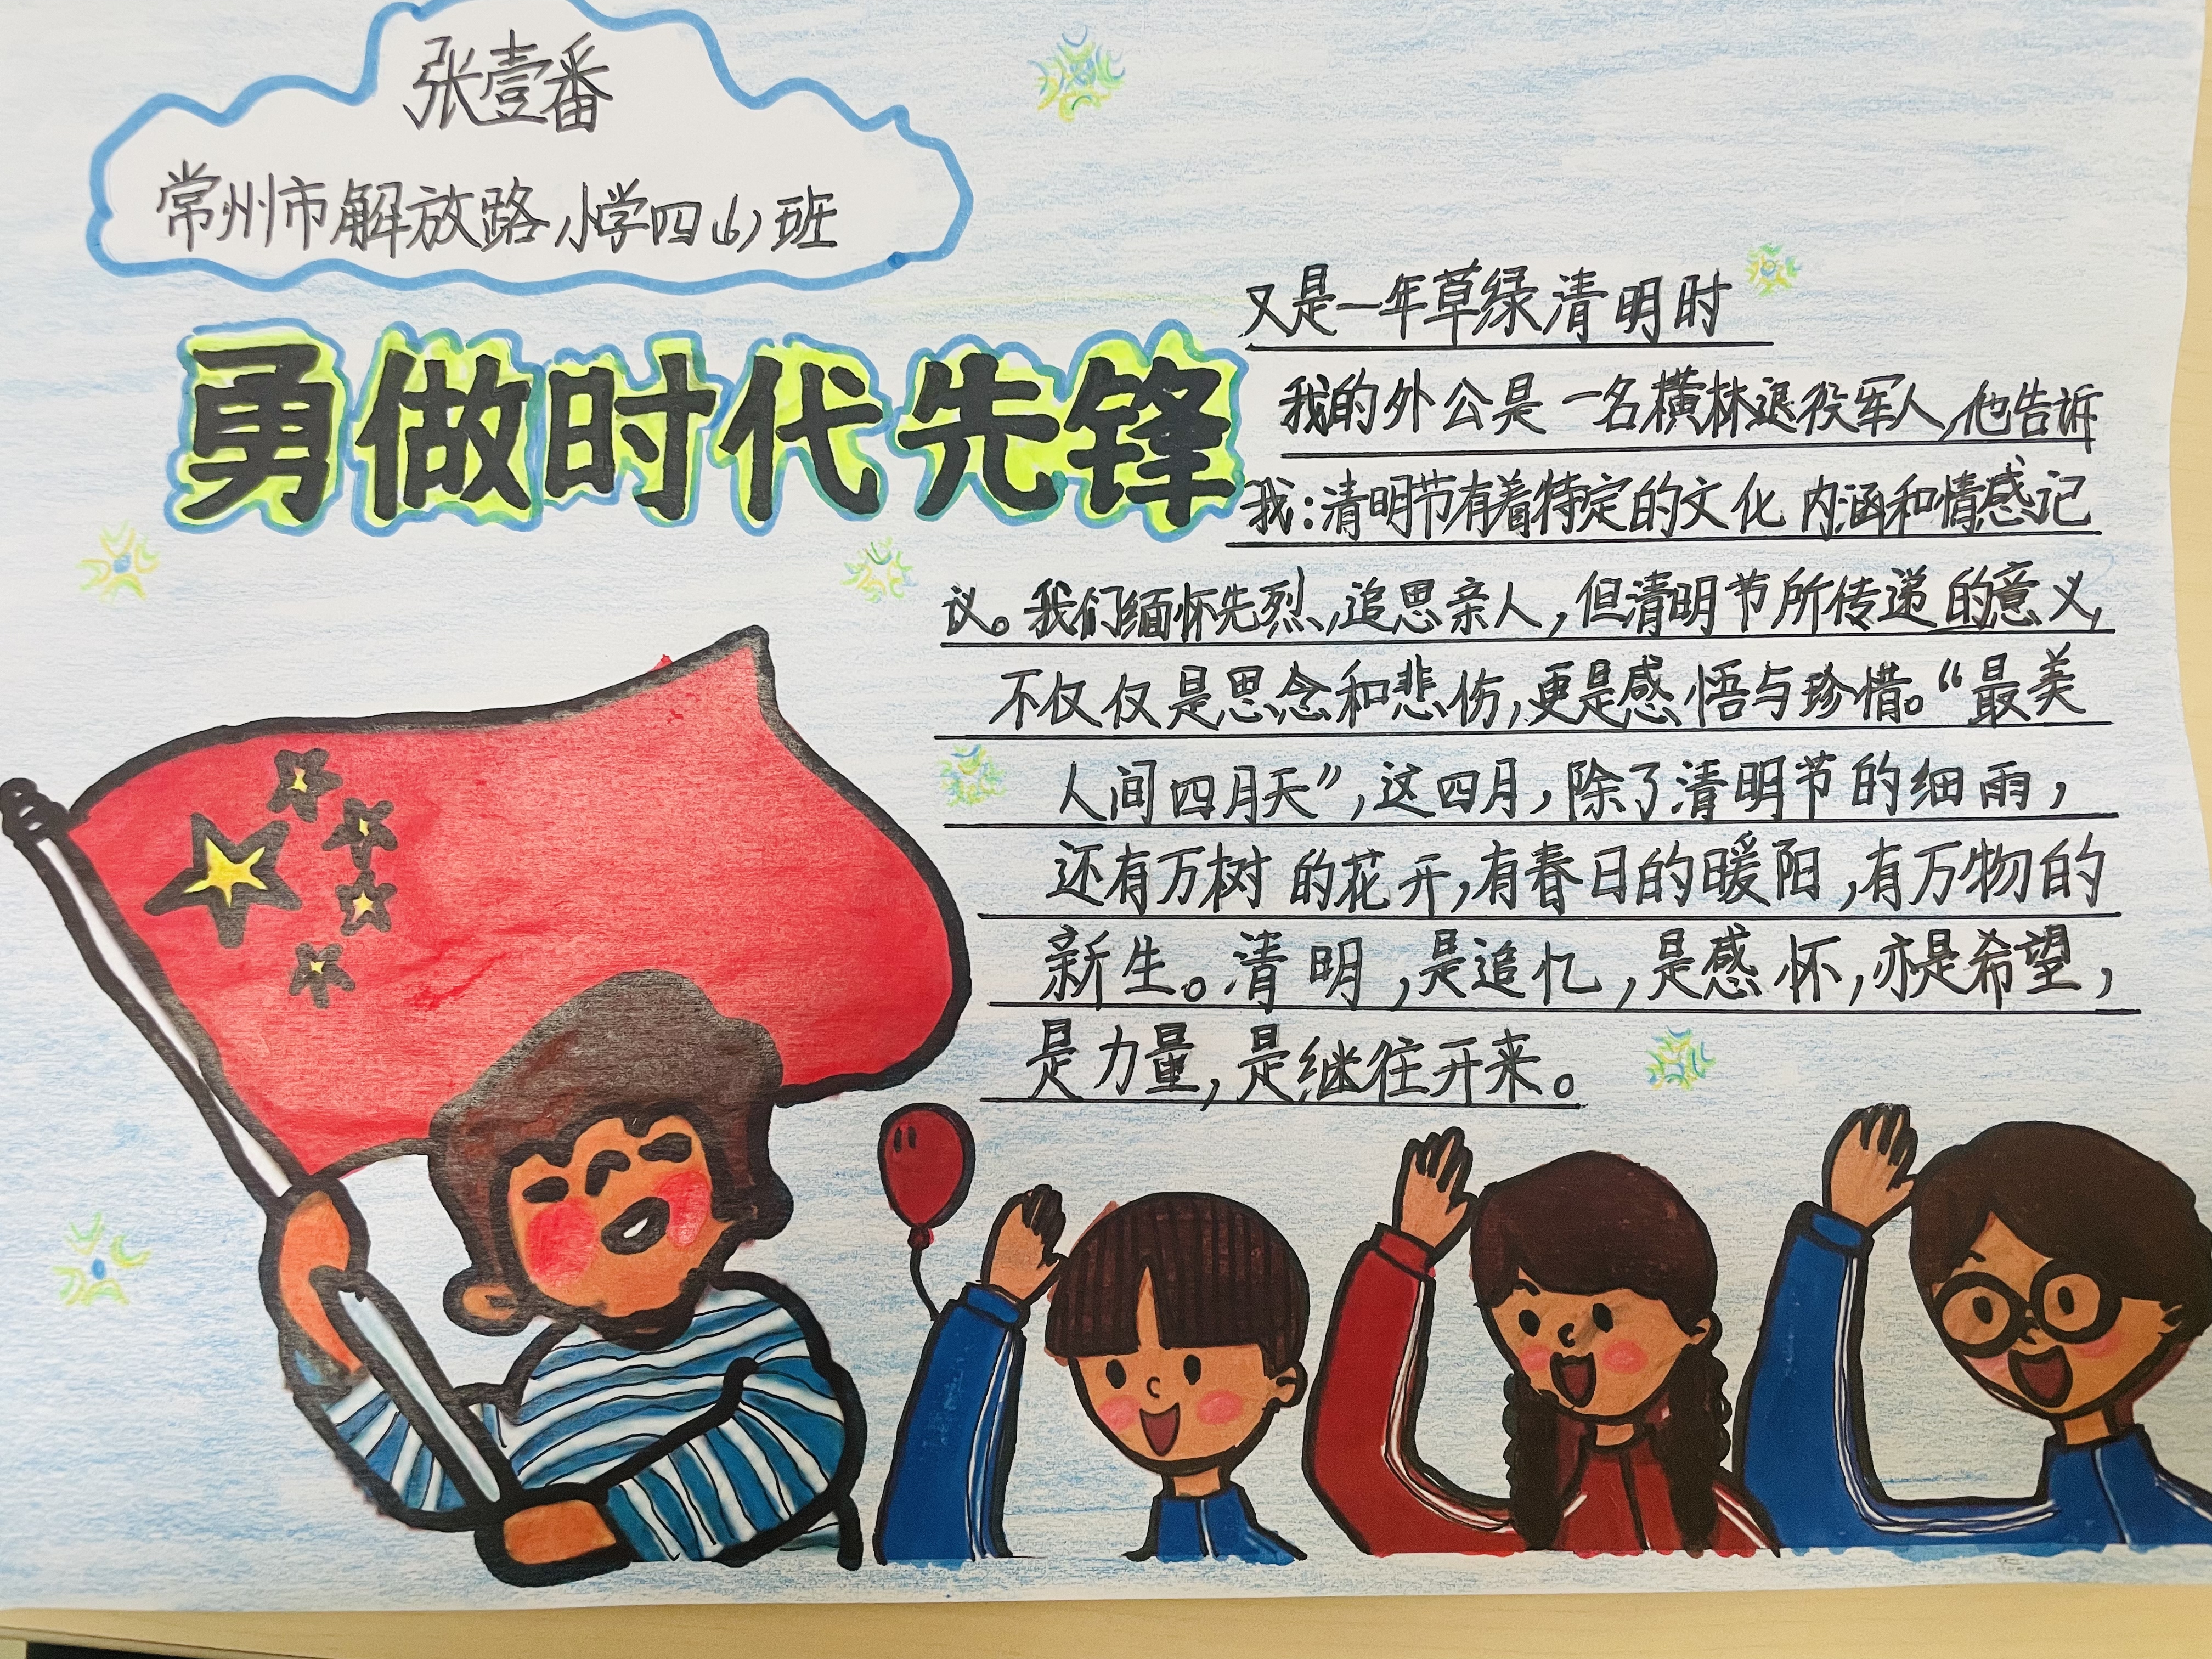 张壹番
常州市解放路小学四(6)班
勇做时代先锋
又是一年草绿清明时
我的外公是一名横林退役军人,他告诉
我:清明节有着特定的文化内涵和情感记
议。我们缅怀先烈,追思亲人,但清明节所传递的意义,
不仅仅是思念和悲伤,更是感悟与珍惜。“最美
人间四月天”,这四月,除了清明节的细雨,
还有万树的花开,有春日的暖阳,有万物的
新生。清明,是追忆,是感怀,亦是希望,
是力量,是继往开来。